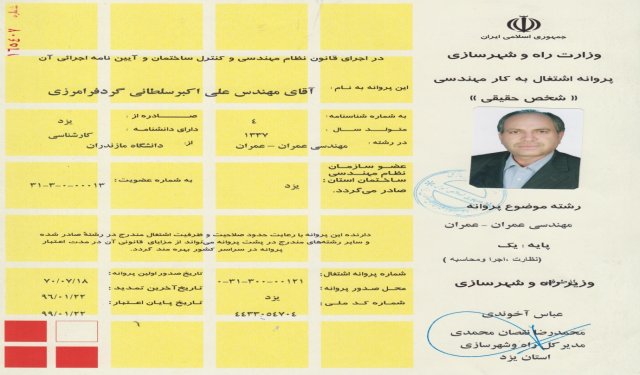 جمهوری اسلامی ایران
وزارت راه و شهرسازی
پروانه اشتغال به کار مهندسی
« شخص حقیقی »
رشته موضوع پروانه
مهندسی عمران - عمران
پایه : یک
( نظارت ،اجرا ومحاسبه )
وزیر راه و شهرسازی
عباس آخوندی
محمدرضا نقصان محمدی
مدیر کل راه وشهرسازی
استان یزد
شماره
در اجرای قانون نظام مهندسی و کنترل ساختمان و آیین نامه اجرائی آن
این پروانه به نام : آقای مهندس علی اکبرسلطانی گردفرامرزی
به شماره شناسنامه : ۴ صادره از : یزد
متولد سال : ۱۳۳۷ دارای دانشنامه : کارشناسی
در رشته : مهندسی عمران - عمران از: دانشگاه مازندران
عضو سازمان
نظام مهندسی
ساختمان استان : یزد به شماره عضویت : ۳۱-۳-۰-۰۰۰۱۳
صادر می‌گردد.
دارنده این پروانه با رعایت حدود صلاحیت و ظرفیت اشتغال مندرج در رشتهٔ صادر شده
و سایر رشته‌های مندرج در پشت پروانه می‌تواند از مزایای قانونی آن در مدت اعتبار
پروانه در سراسر کشور بهره مند گردد.
شماره پروانه اشتغال: ۰-۳۱-۳۰۰-۰۰۱۲۱ تاریخ صدور اولین پروانه : ۷۰/۰۷/۱۸
محل صدور پروانه : یزد تاریخ آخرین تمدید : ۹۶/۰۱/۲۲
شماره کد ملی : ۴۴۳۳۰۵۴۷۰۴ تاریخ پایان اعتبار: ۹۹/۰۱/۲۲